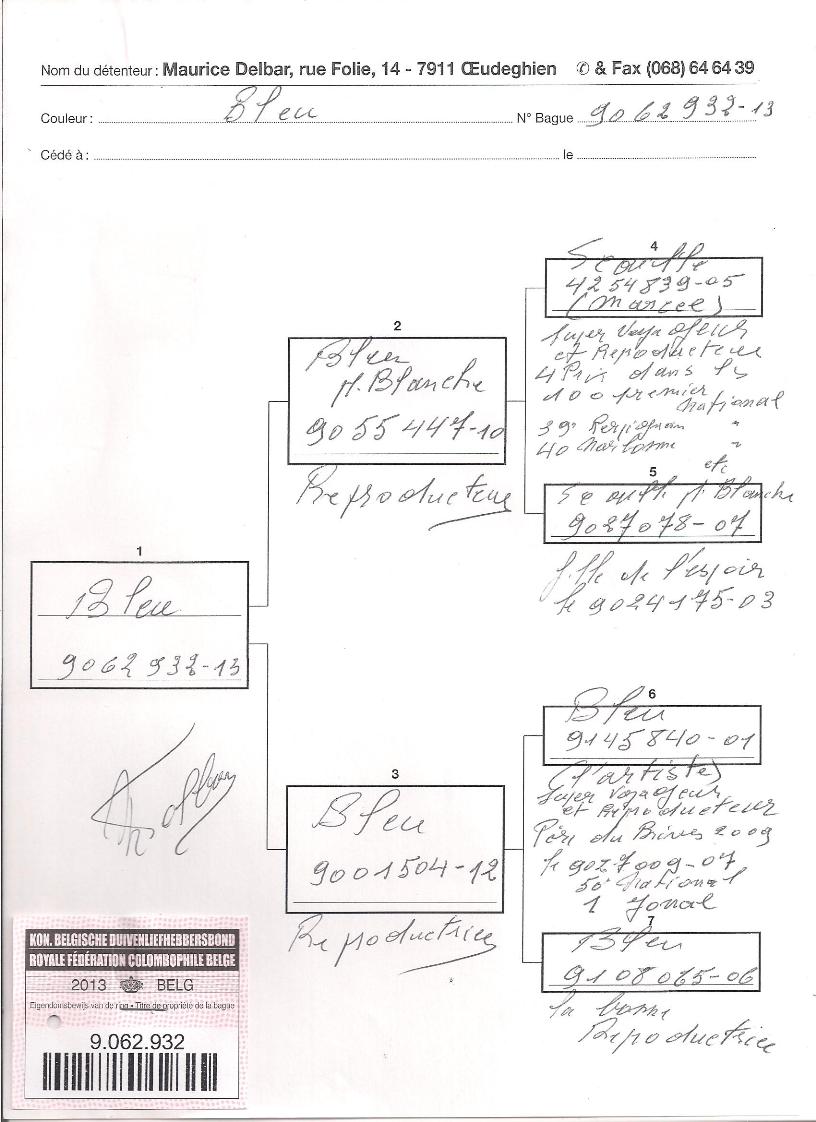 Nom du détenteur : Maurice Delbar, rue Folie, 14 - 7911 Œudeghien ✆ & Fax (068) 64 64 39
Couleur : Bleu N° Bague 9062932-13
Cédé à : le
4
Ecaille
4254839-05
(Marcel)
Super Voyageur
et Reproducteur
4 Prix dans les
100 premier
National
39e Perpignan "
40 Narbonne "
etc
2
Bleu
pl. Blanche
9055447-10
Reproducteur
5
Ecaille pl. Blanche
9027078-07
fille de l'espoir
le 9024175-03
1
Bleu
9062932-13
6
Bleu
9145840-01
(l'artiste)
Super Voyageur
et Reproducteur
Père du Brives 2009
le 9027009-07
50e National
1 Zonal
3
Bleu
9001504-12
Reproductrice
7
Bleu
9108065-06
la bonne
Reproductrice
KON. BELGISCHE DUIVENLIEFHEBBERSBOND
ROYALE FÉDÉRATION COLOMBOPHILE BELGE
2013 BELG
Eigendomsbewijs van de ring - Titre de propriété de la bague
9.062.932